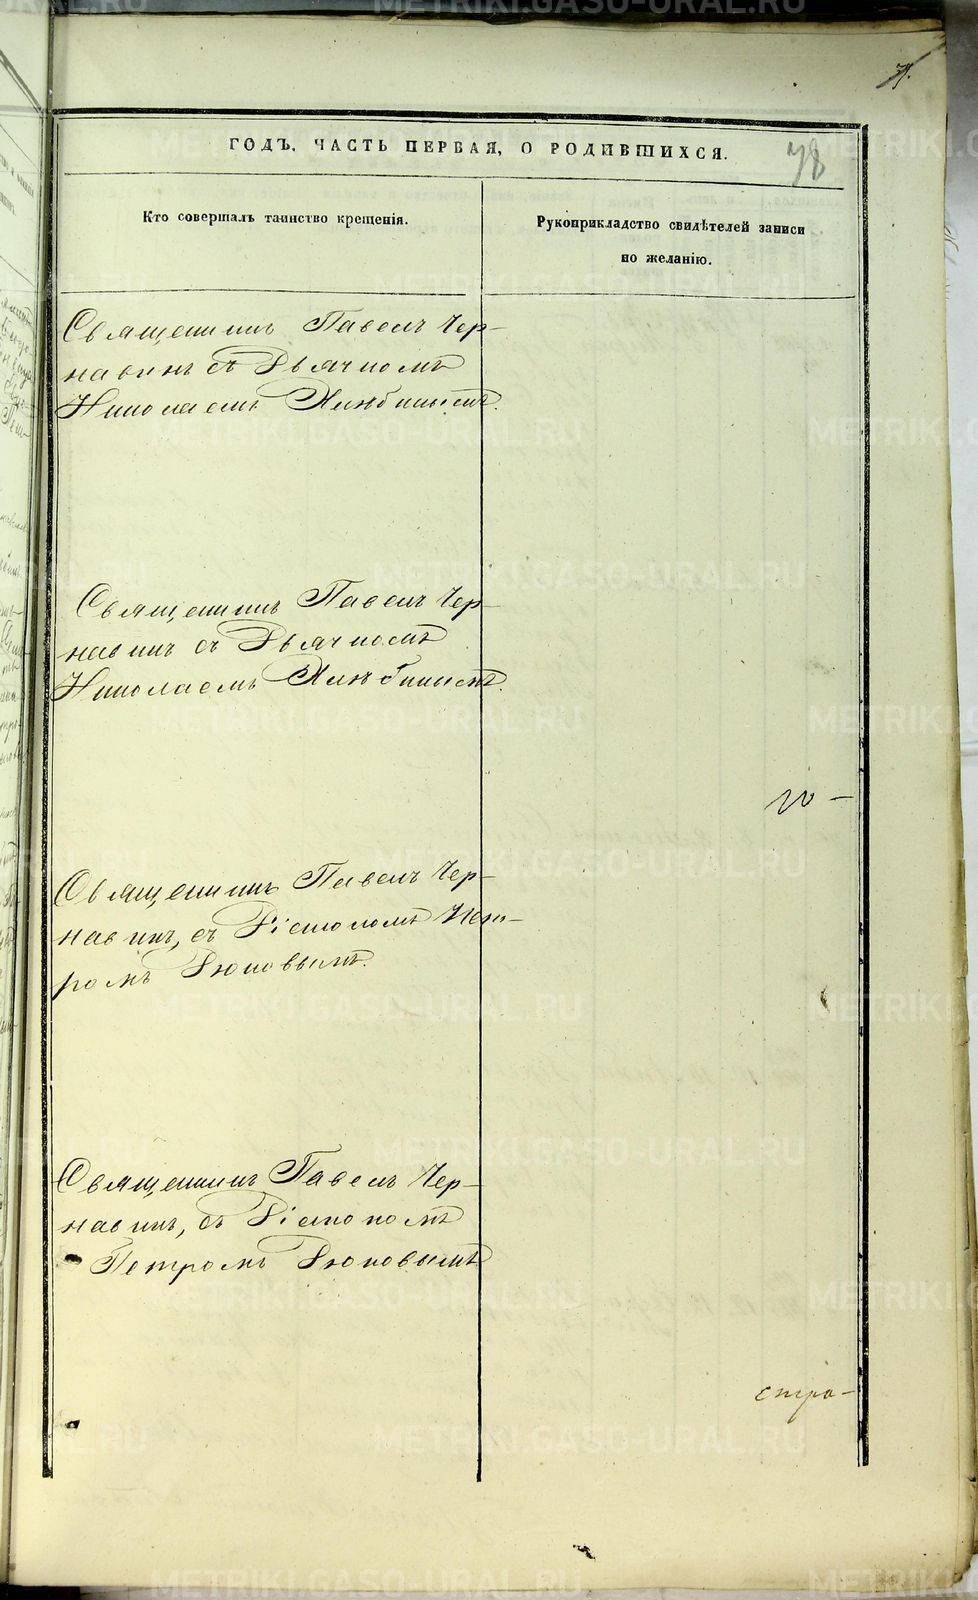 ГОДЪ. ЧАСТЬ ПЕРВАЯ, О РОДИВШИХСЯ.
78
Кто совершалъ таинство крещенія.
Рукоприкладство свидѣтелей записи
по желанію.
Священникъ Павелъ Чер-
навинъ съ Дьячкомъ
Николаемъ
Священникъ Павелъ Чер-
навинъ съ Дьячкомъ
Николаемъ
го-
Священникъ Павелъ Чер-
навинъ, съ Діакономъ Пет-
ромъ Дюковымъ.
Священникъ Павелъ Чер-
навинъ, съ Діакономъ
Петромъ Дюковымъ
стра-
METRIKI.GASO-URAL.RU